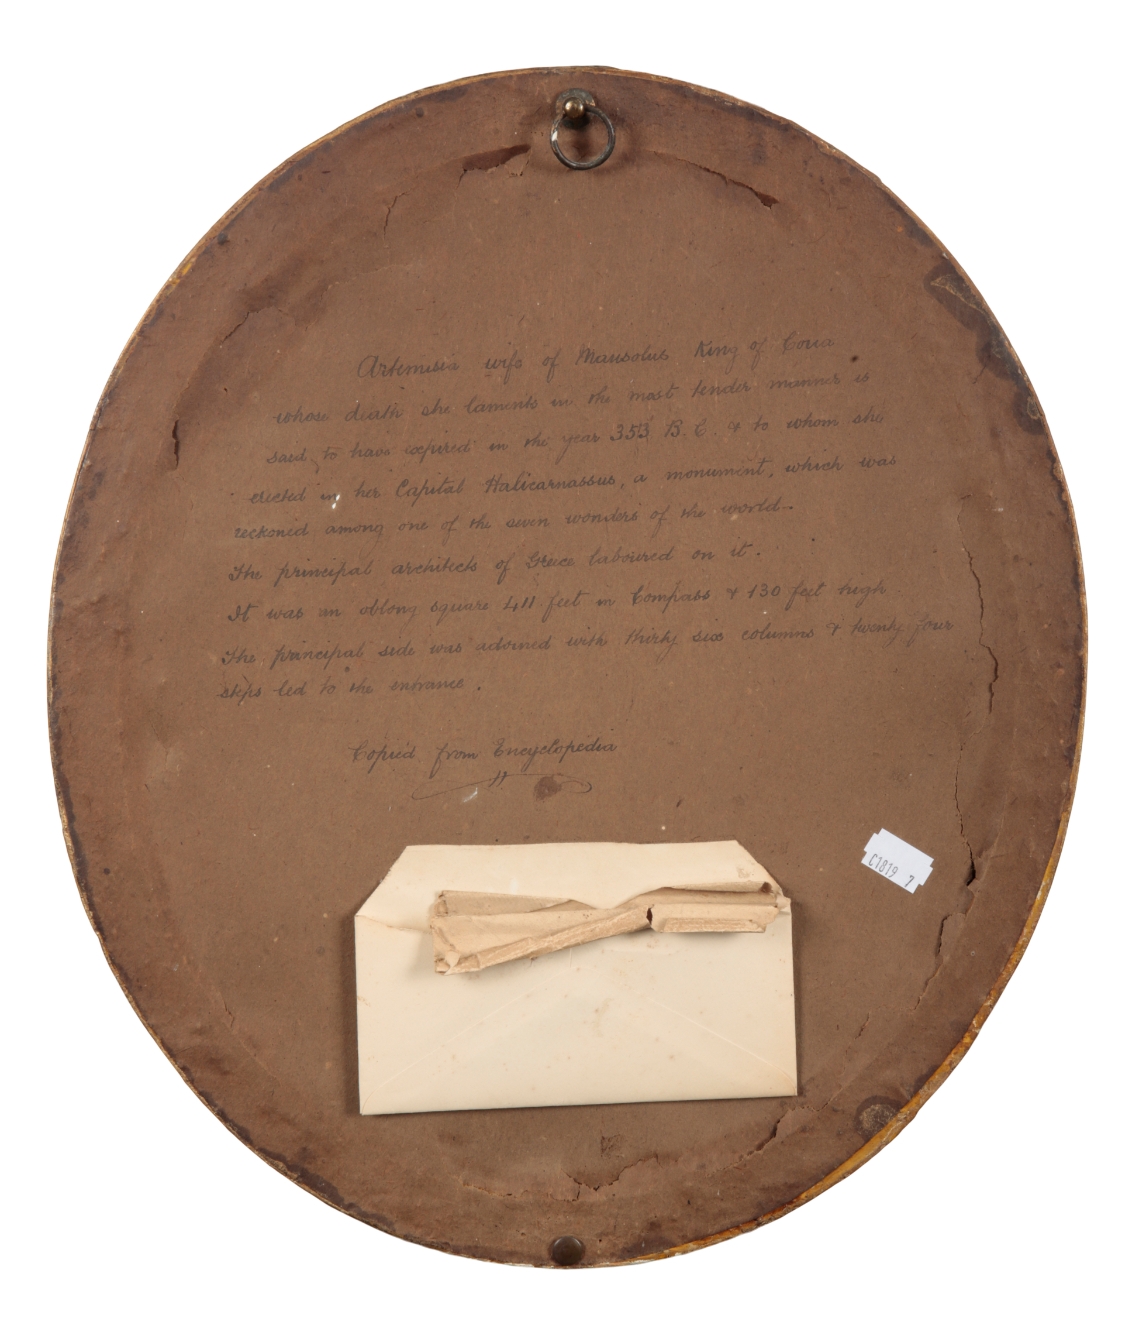 Artemisia wife of Mausolus King of Coria
whose death she laments in the most tender manner is
said to have expired in the year 353 B.C. & to whom she
erected in her Capital Halicarnassus, a monument, which was
reckoned among one of the seven wonders of the world -
The principal architects of Greece laboured on it.
It was an oblong square 411 feet in Compass & 130 feet high
The principal side was adorned with thirty six columns & twenty four
steps led to the entrance.
Copied from Encyclopedia
C1819 7